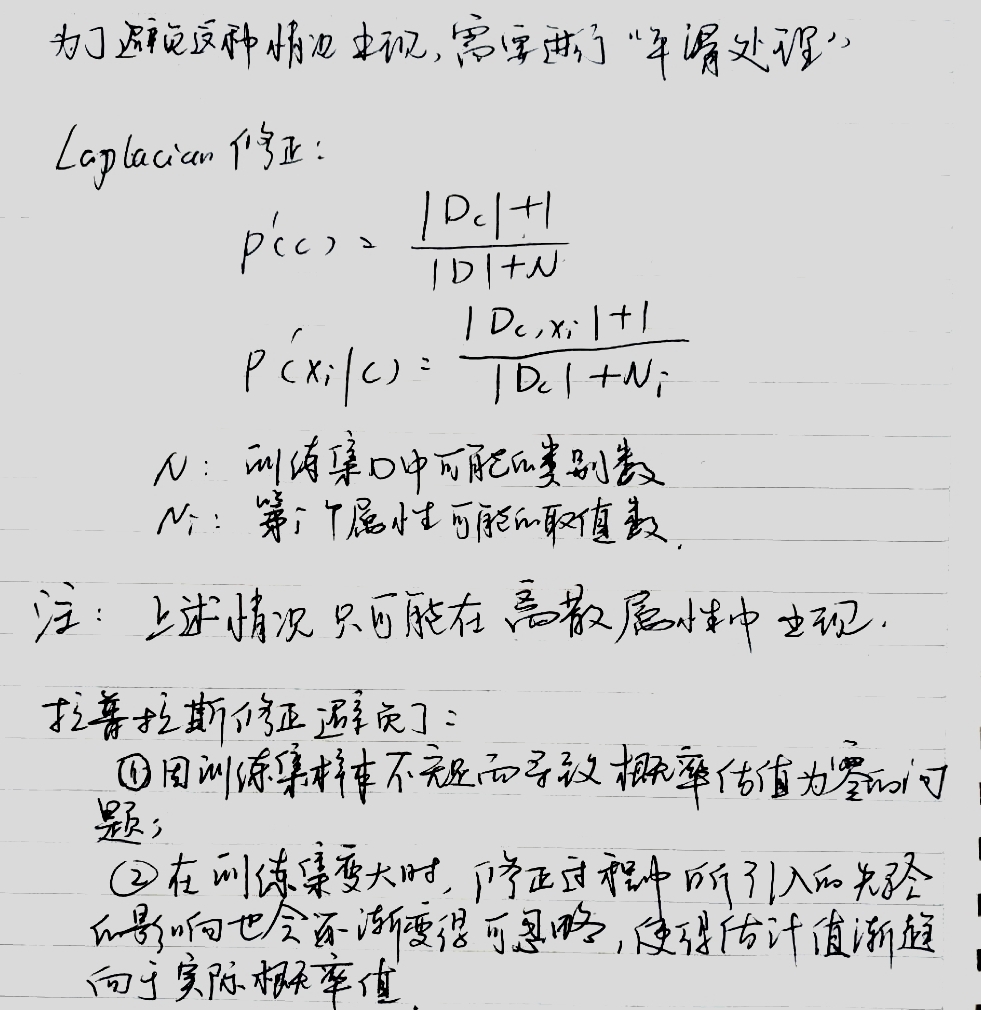 为了避免这种情况出现,需要进行“平滑处理”
Laplacian 修正:
P'(c) = (|D_c|+1) / (|D|+N)
P'(x_i|c) = (|D_c,x_i|+1) / (|D_c|+N_i)
N: 训练集D中可能的类别数
N_i: 第i个属性可能的取值数.
注: 上述情况只可能在离散属性中出现.
拉普拉斯修正避免了:
①因训练集样本不充足而导致概率估值为零的问
题;
②在训练集变大时,修正过程中所引入的先验
的影响也会逐渐变得可忽略,使得估计值渐趋
向于实际概率值.